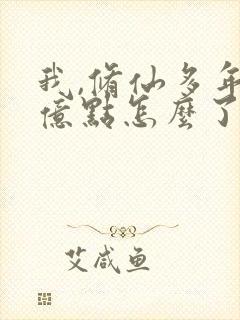 我,脩仙多年
億點怎麼了
艾咸鱼